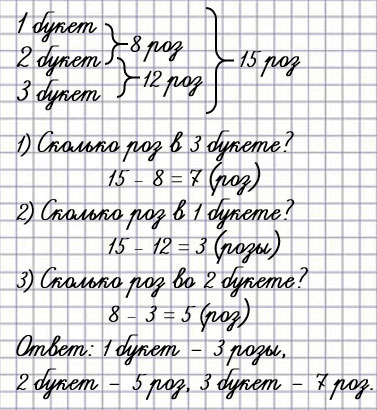 1 букет
8 роз
2 букет
15 роз
12 роз
3 букет
1) Сколько роз в 3 букете?
15 - 8 = 7 (роз)
2) Сколько роз в 1 букете?
15 - 12 = 3 (розы)
3) Сколько роз во 2 букете?
8 - 3 = 5 (роз)
Ответ: 1 букет - 3 розы,
2 букет - 5 роз, 3 букет - 7 роз.